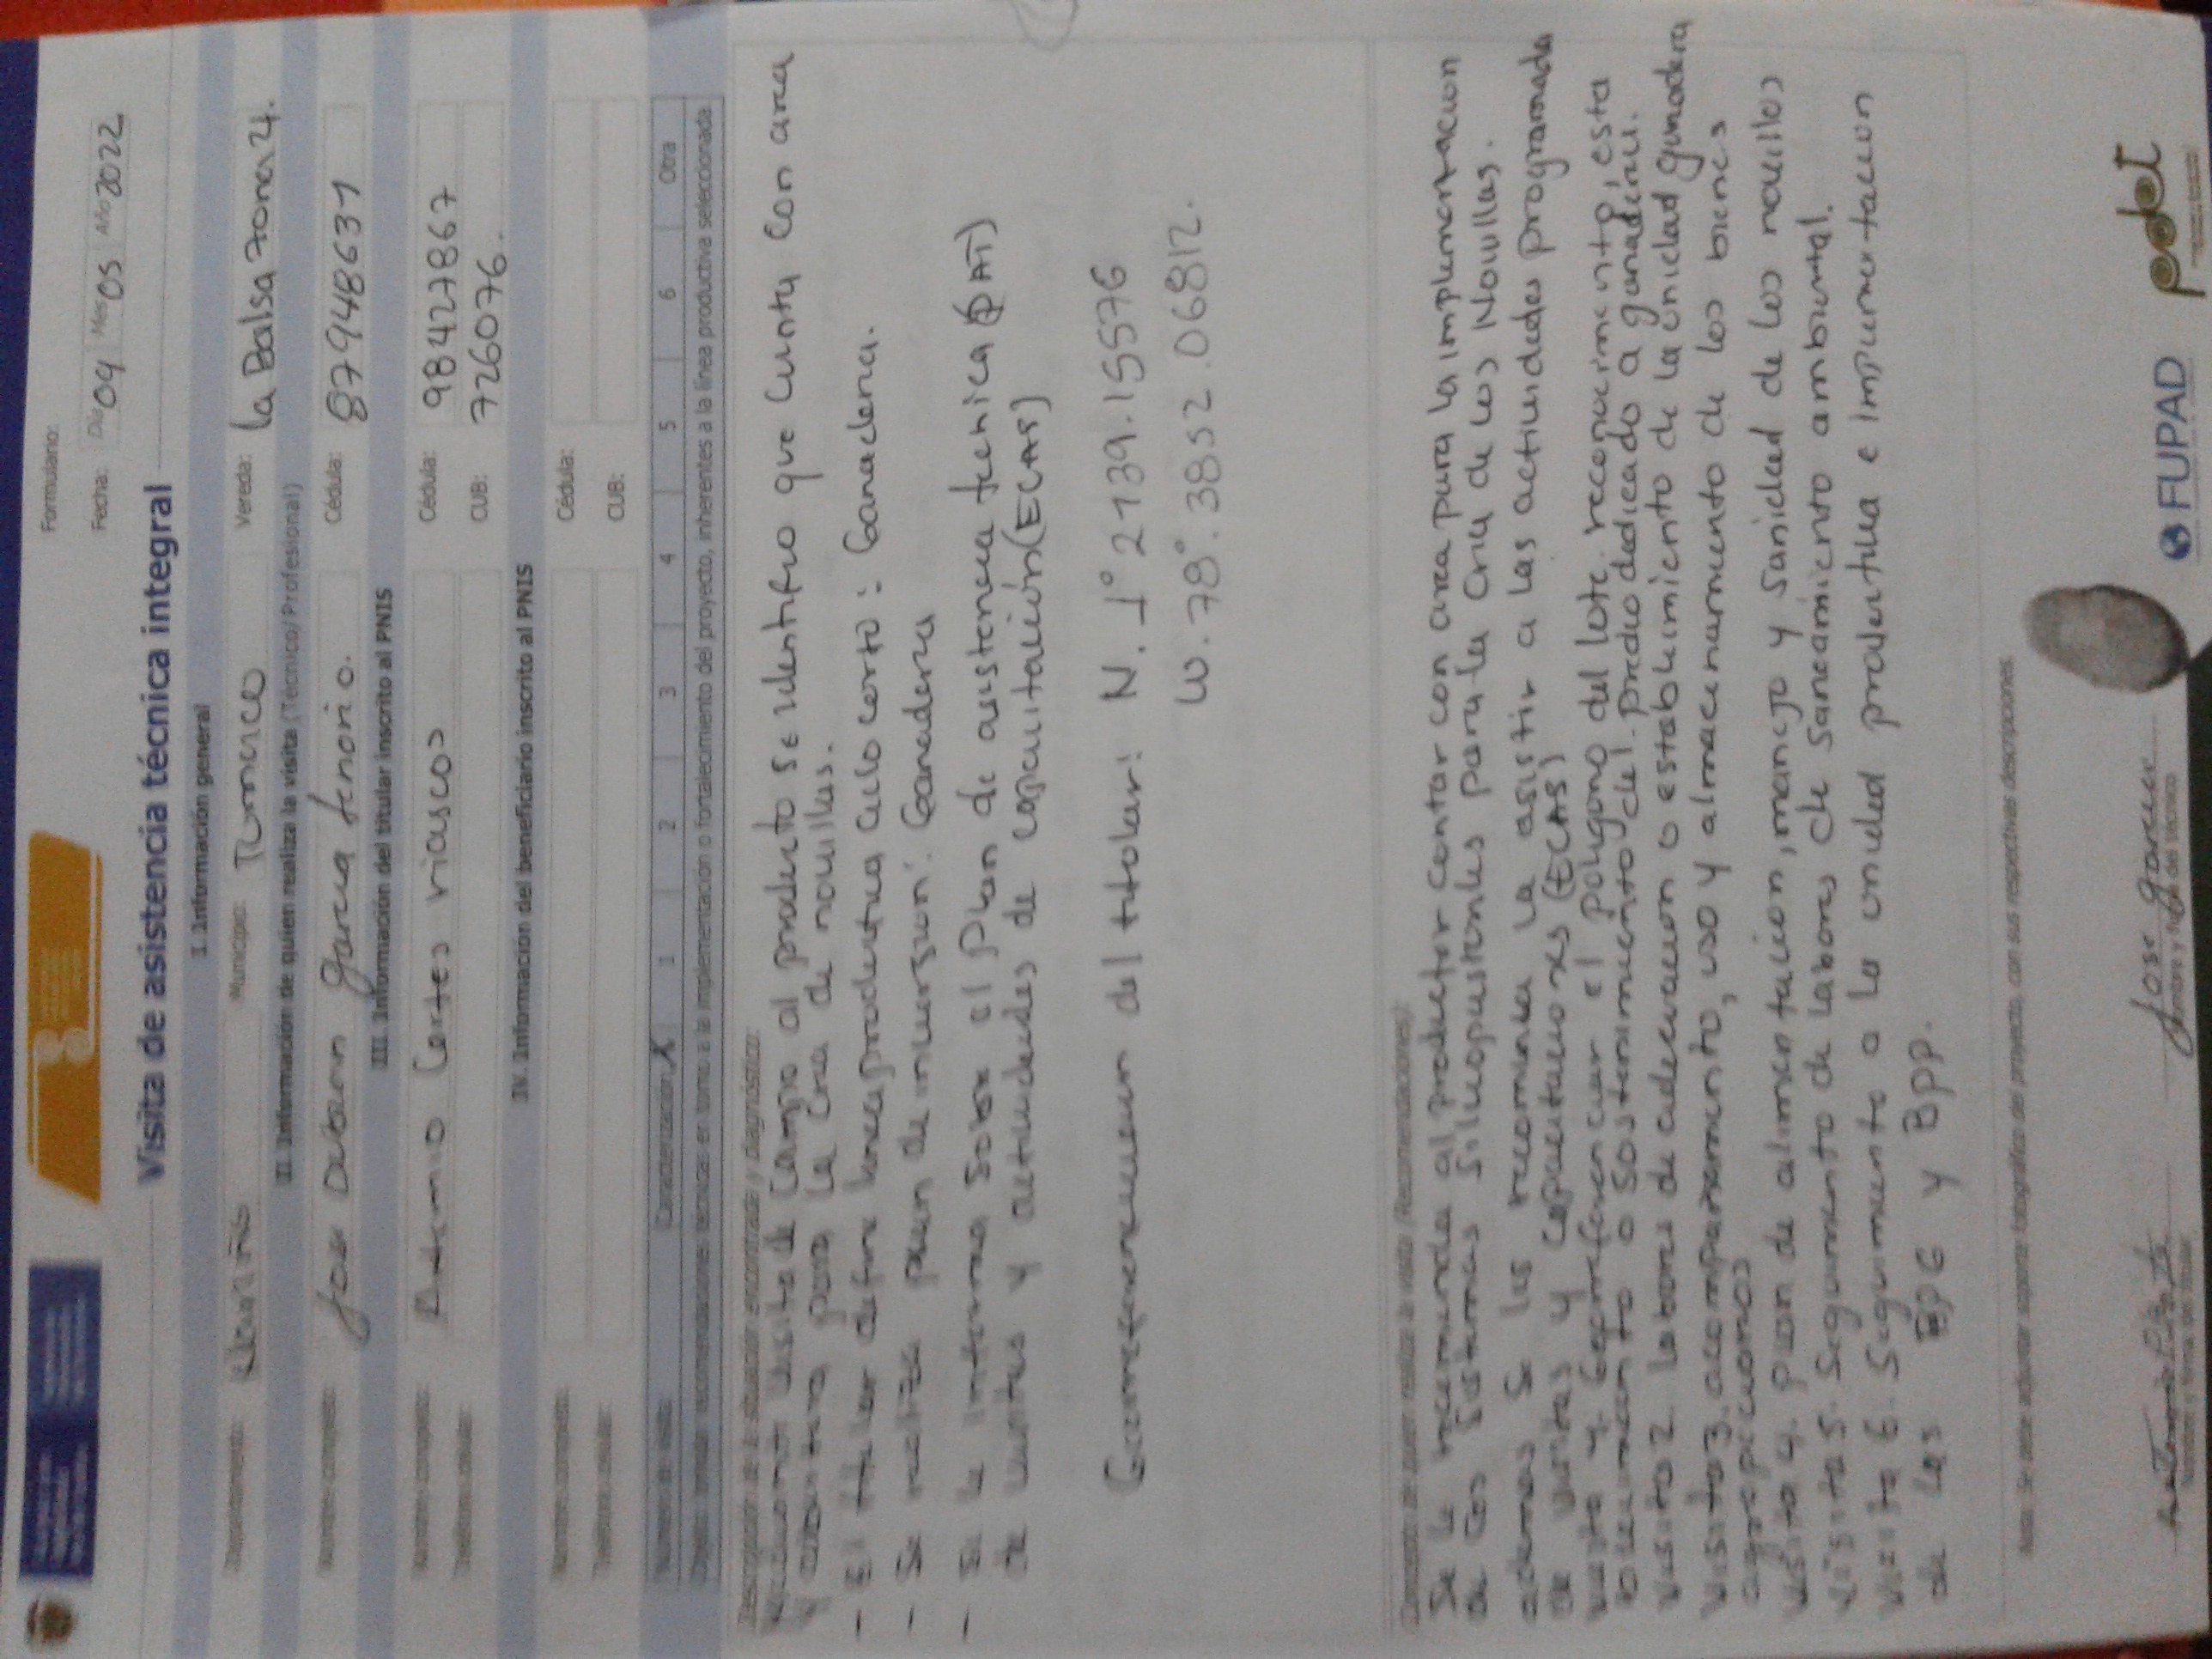 Formulario:
Fecha: Día 09 Mes 05 Año 2022
Visita de asistencia técnica integral
I. Información general
Departamento: Nariño Municipio: Tumaco Vereda: la Balsa zona 24.
II. Información de quien realiza la visita (Técnico/Profesional)
Nombre completo: Jose Dubann garcia tenorio. Cédula: 87948631
III. Información del titular inscrito al PNIS
Nombre completo: Artemio Cortes viascos Cédula: 98427867
CUB: 7260076.
IV. Información del beneficiario inscrito al PNIS
Nombre completo: Cédula:
CUB:
Número de visita: Caracterización X 1 2 3 4 5 6 Otra
recomendaciones técnicas en torno a la implementación o fortalecimiento del proyecto, inherentes a la línea productiva seleccionada.
Descripción de la situación encontrada y diagnóstico:
visita de Campo al producto se identifico que Cunta Con area
para la Cria de nouillas.
- El titular define linea productiva ciclo corto: Ganaderia.
- Se realiza plan de inuersion: Ganaderia
- Se le informa sobre el Plan de asistencia tecnica (PAT)
de visitas y actiuidades de capacitación (ECAS)
Georreferenciacion del titular: N. 1° 2139.155576
W. 78°. 3852.06812.
(Recomendaciones):
Se le recomienda al productor contar con area para la implementacion
de los Sistemas Siluopastoriles para la Cria de los Nouillas.
ademas Se les recomienda la asistir a las actiuidades programada
de visitas y capacitaciones (ECAS)
visita 1 Georreferenciar el poligono del lote, reconocimiento, esta
blecimiento o sostenimiento del predio dedicado a ganaderia.
visita 2. labores de adecuacion o establecimiento de la Unidad ganadera
Visita 3. acompañamiento, uso y almacenamiento de los bienes
agropecuarios
visita 4. plan de alimentacion, manejo y Sanidad de los nouillos
visita 5. Seguimiento de labores de Saneamiento ambiental.
visita 6. Seguimiento a la unidad productiva e implementacion
de las BPG y BPP.
Nota: Se debe adjuntar soporte fotográfico del proyecto, con sus respectivas descripciones
Jose garcia
Nombre y firma del técnico
Nombre y firma del titular
FUPAD
pdet